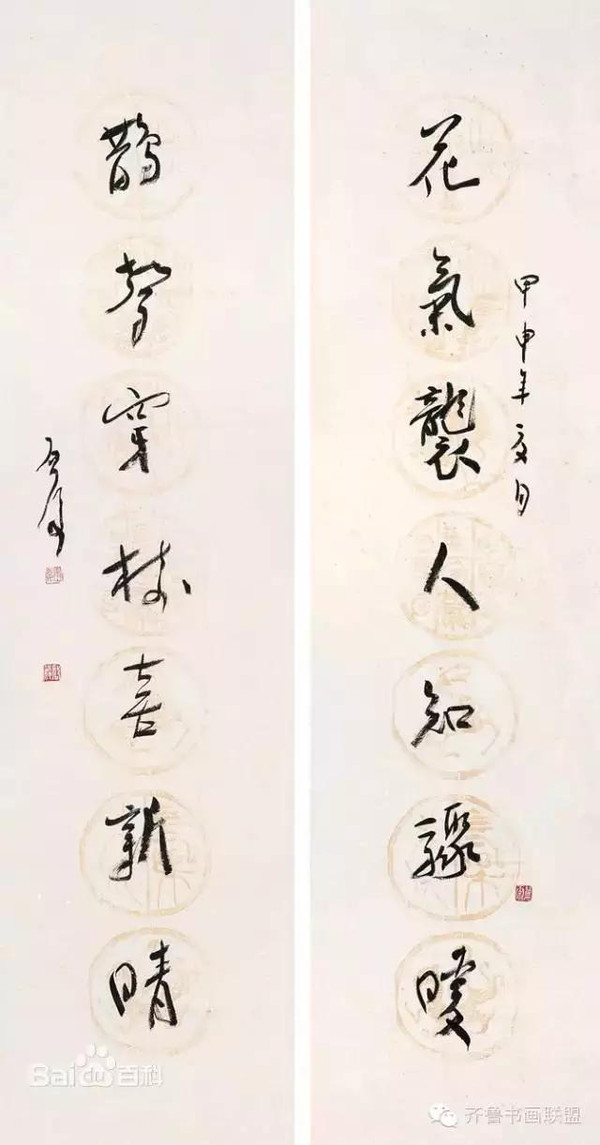 花氣襲人知驟暖
甲申年夏月
鵲聲穿樹喜新晴
Bai du 百科
齐鲁书画联盟